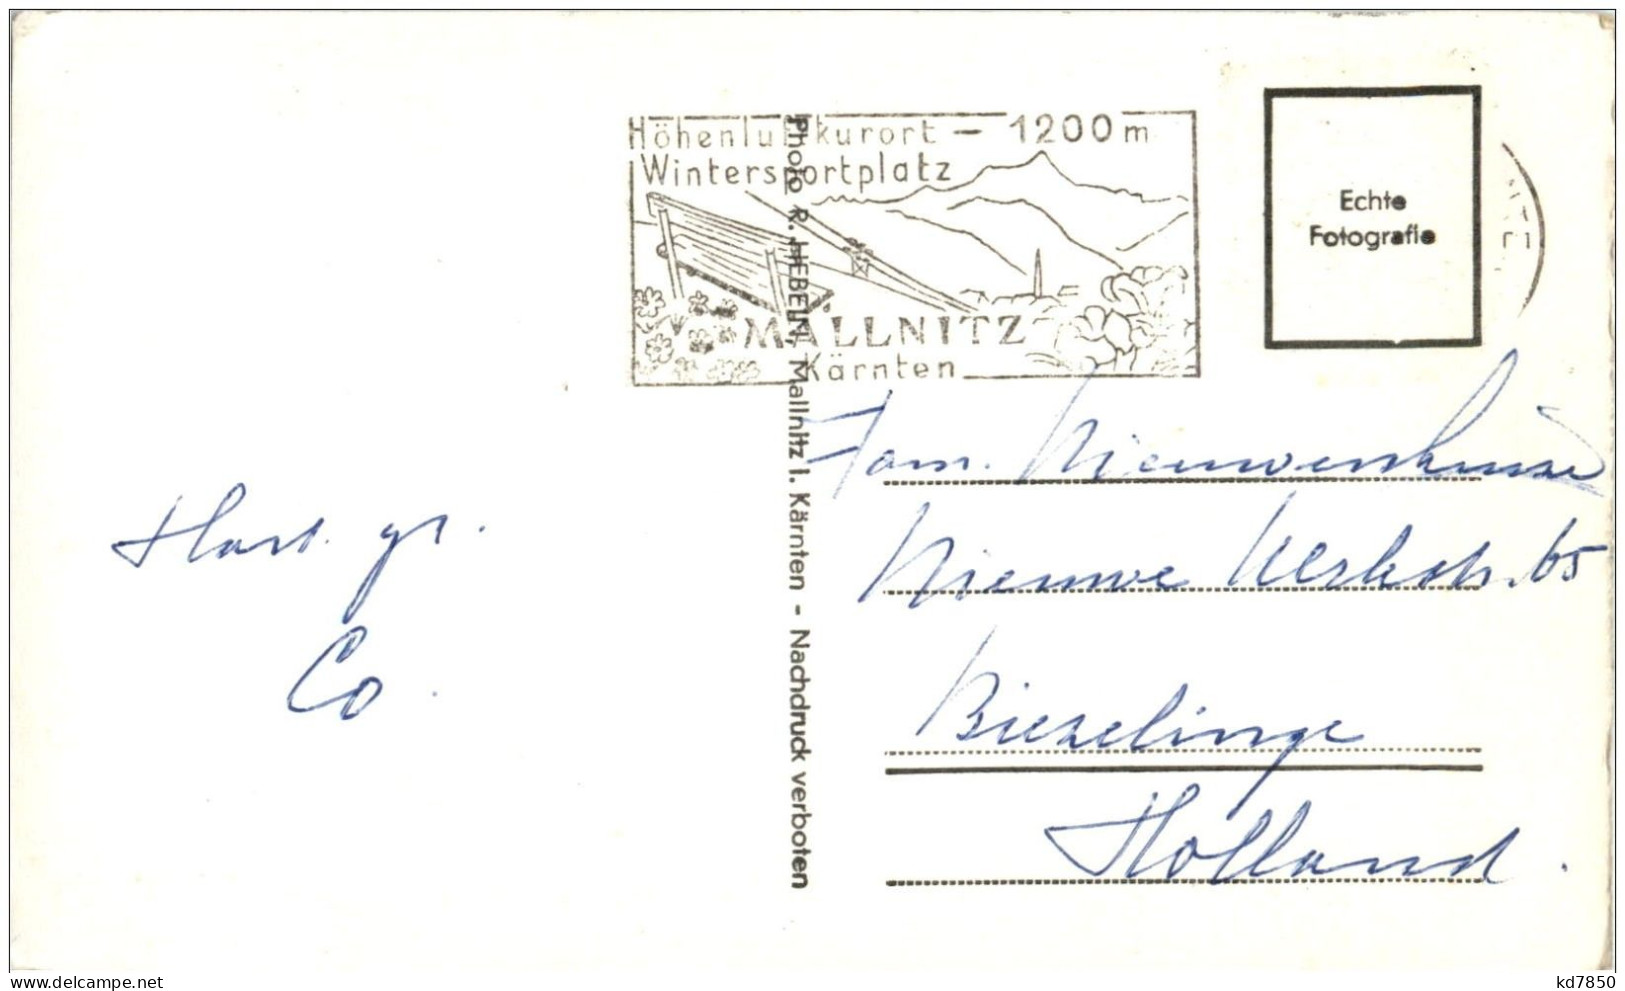 Höhenluftkurort – 1200 m
Wintersportplatz
MALLNITZ
Kärnten
Echte
Fotografie
Photo R. HEBEIN, Mallnitz i. Kärnten - Nachdruck verboten
Hart. gr.
Co.
Fam. Nieuwenhuize
Nieuwe Kerkstr. 65
Biezelinge
Holland.
kd7850